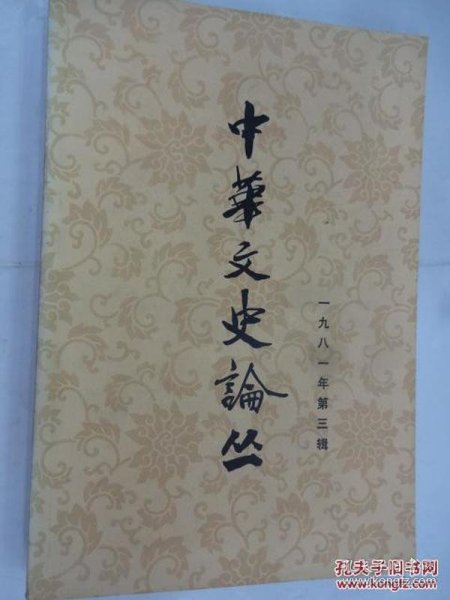 中華文史論丛
一九八一年第三辑
孔夫子旧书网
www.kongfz.com